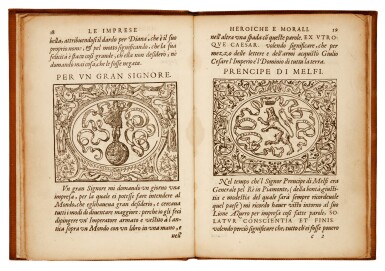 18 LE IMPRESE
bella, attribuendosi il dardo per Diana, che è il suo
proprio nome, & pel motto significando, che la sua
felicità è stata così grande, che ella non desiderò, ne
domandò mai cosa, che le fosse negata.
PER VN GRAN SIGNORE.
Vn gran Signore mi domandò un giorno una
impresa, per la quale ei potesse fare intendere al
Mondo, che egli haveua gran desiderio, e cercaua
tutti i modi di diuentare maggiore: perche io gli feci
dipingere vn' Imperatore armato e vestito a l'an-
tica sopra vn Mondo con vn libro in vna mano, e
nell'
HEROICHE E MORALI 19
nell'altra vna spada con queste parole, EX VTRO-
QVE CAESAR. volendo significare, che per
mezzo delle lettere e dell'armi acquistò Giulio
Cesare l'Imperio e'l Dominio di tutta la terra.
PRENCIPE DI MELFI.
Nel tempo che'l Signor Prencipe di Melfi era
Generale pel Re in Piamonte, (della bontà, giusti-
tia e modestia del quale sarà sempre ricordeuole
quel paese) mi ricorda hauer visto intorno al suo
Lione Azurro per impresa così fatte parole: SO-
LATVR CONSCIENTIA ET FINIS.
volendo perciò significare che, tutto ch'ei fosse pouero
c 2